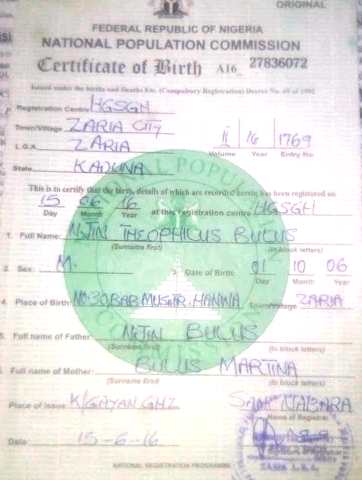 ORIGINAL
FEDERAL REPUBLIC OF NIGERIA
NATIONAL POPULATION COMMISSION
Certificate of Birth A16 27836072
Issued under the births and Deaths Etc. (Compulsory Registration) Decree No. 69 of 1992
Registration Centre HGSGH
Town/Village ZARIA CITY
L.G.A. ZARIA
II 16 1769
Volume Year Entry No.
State KADUNA
This is to certify that the birth, details of which are recorded herein has been registered on
15 06 16 at this registration centre HGSGH
Day Month Year
1. Full Name: NTIN THEOPHILUS BULUS
(Surname first) (in block letters)
2. Sex: M. 3. Date of Birth 01 10 06
Day Month Year
4. Place of Birth NO 30 BAB MUSA ST. HANWA Town/Village ZARIA
5. Full name of Father NTIN BULUS
(Surname first) (In block letters)
Full name of Mother BULUS MARTINA
(Surname first) (In block letters)
Place of Issue K/GAYAN GHZ
Name of Registrar
Date 15-6-16
NATIONAL REGISTRATION PROGRAMME